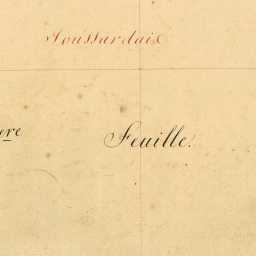 Toussardais
ere Feuille.